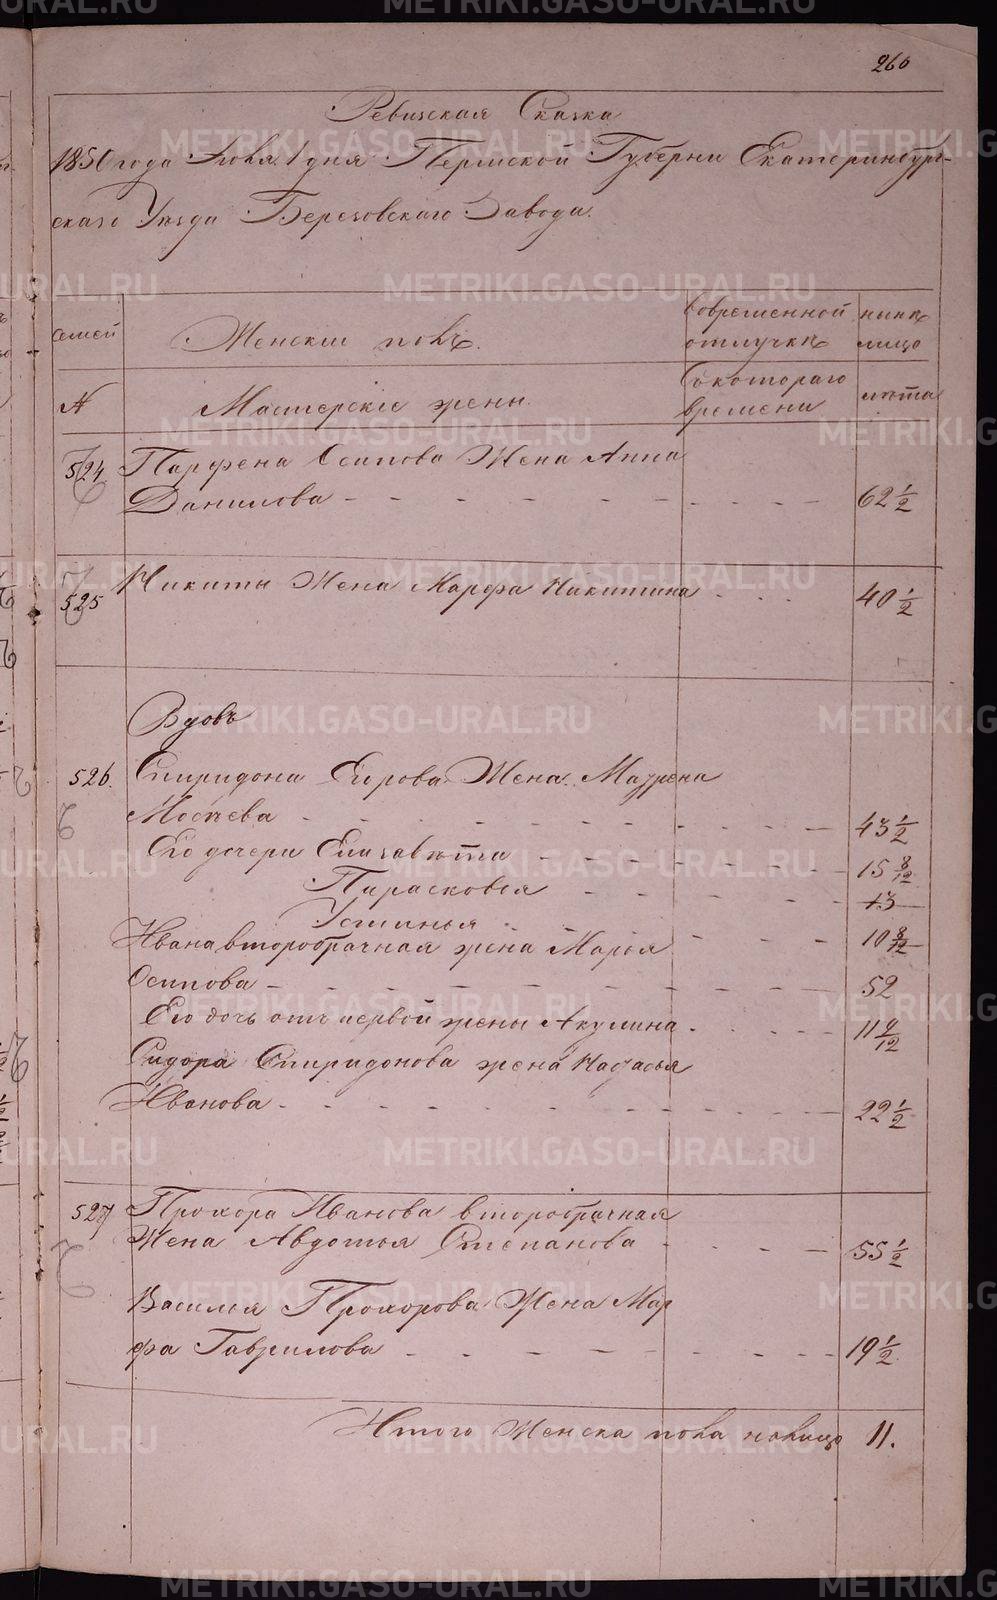 260
Ревизская Сказка
1850 года Июля 1 дня Пермской Губерни Екатеринбург-
скаго Уезда Березовскаго Завода.
семей
Женскии полъ.
Во временной
отлучкѣ
ныне
лицо
№
Мастерские жены.
Съ котораго
времени
лѣта
524
Парфена Осипова Жена Анна
Данилова
62 1/2
525
Никиты Жена Марфа Никитина
40 1/2
Вдовъ
526.
Спиридона Жена Маурена
43 1/2
Его дочери Елизавѣта
15 8/12
Парасковья
13
Устинья
10 8/12
Ивана второбрачная жена Марья
Осипова
52
Его дочь отъ первой жены Акулина
11 9/12
Сидора Спиридонова жена Настасья
Иванова
22 1/2
527
Прохора Иванова второбрачная
Жена Авдотья Степанова
55 1/2
Василья Прохорова Жена Мар
фа Гаврилова
19 1/2
Итого Женска пола налицо 11.
METRIKI.GASO-URAL.RU